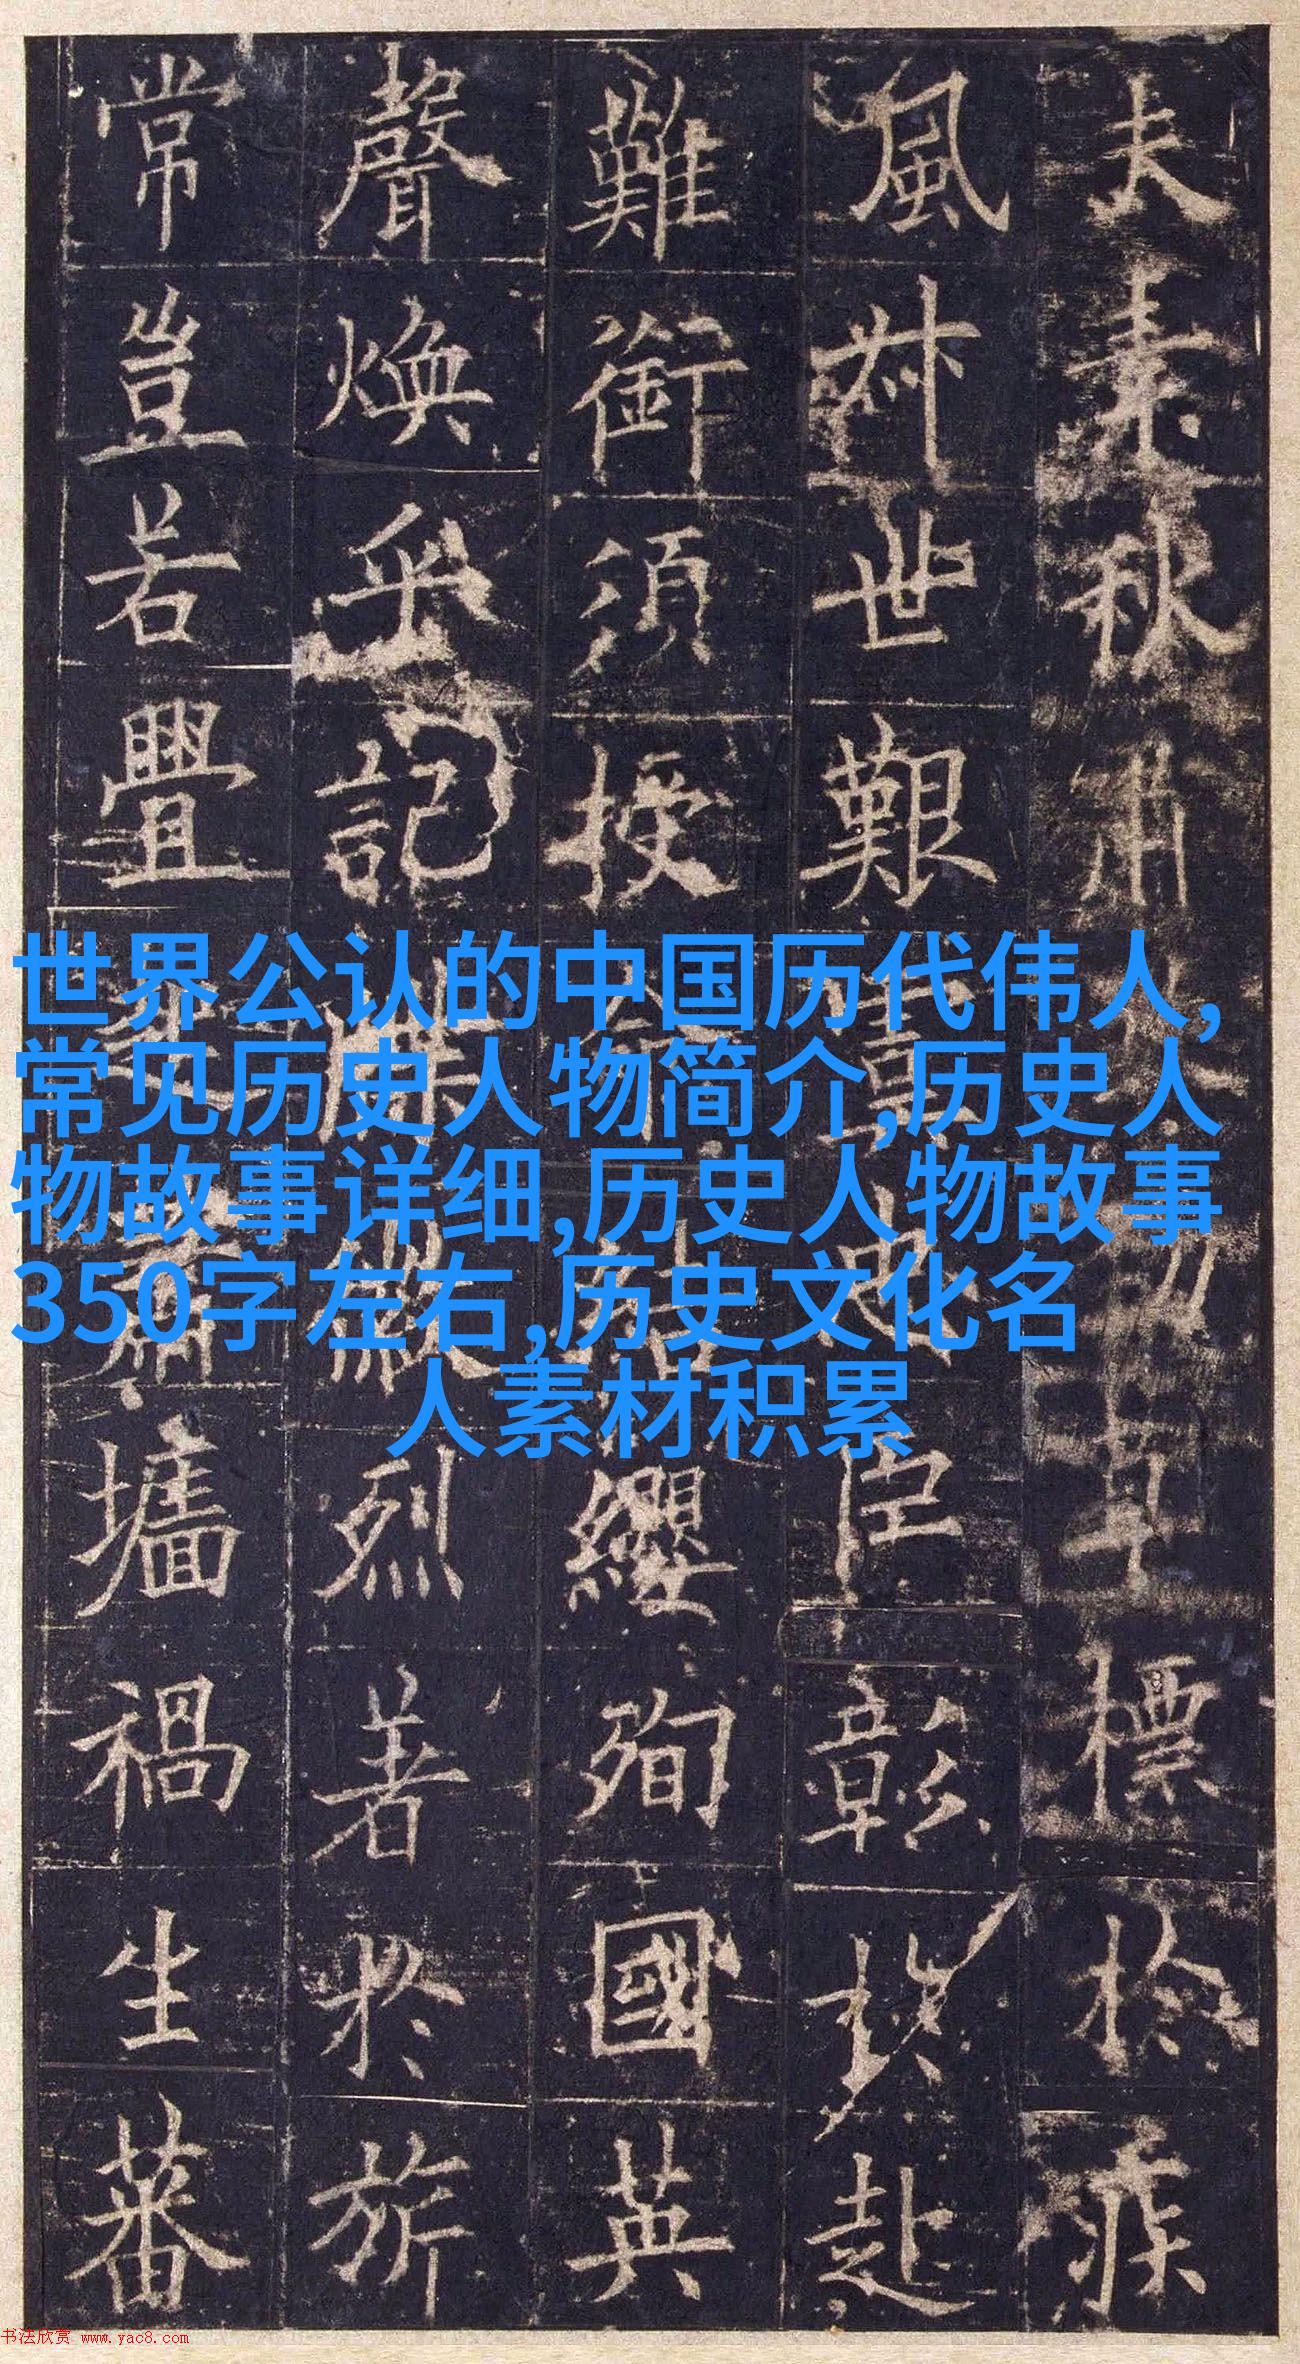 夫素秋肅煞勁草標於疾
風叔世艱虞忠臣彰於赴
難銜須授命結纓殉國英
聲煥乎記牒徽烈著於旂
常豈若舋起蕭墻禍生蕃
世界公认的中国历代伟人,
常见历史人物简介,历史人
物故事详细,历史人物故事
350字左右,历史文化名
人素材积累
书法欣赏 www.yac8.com